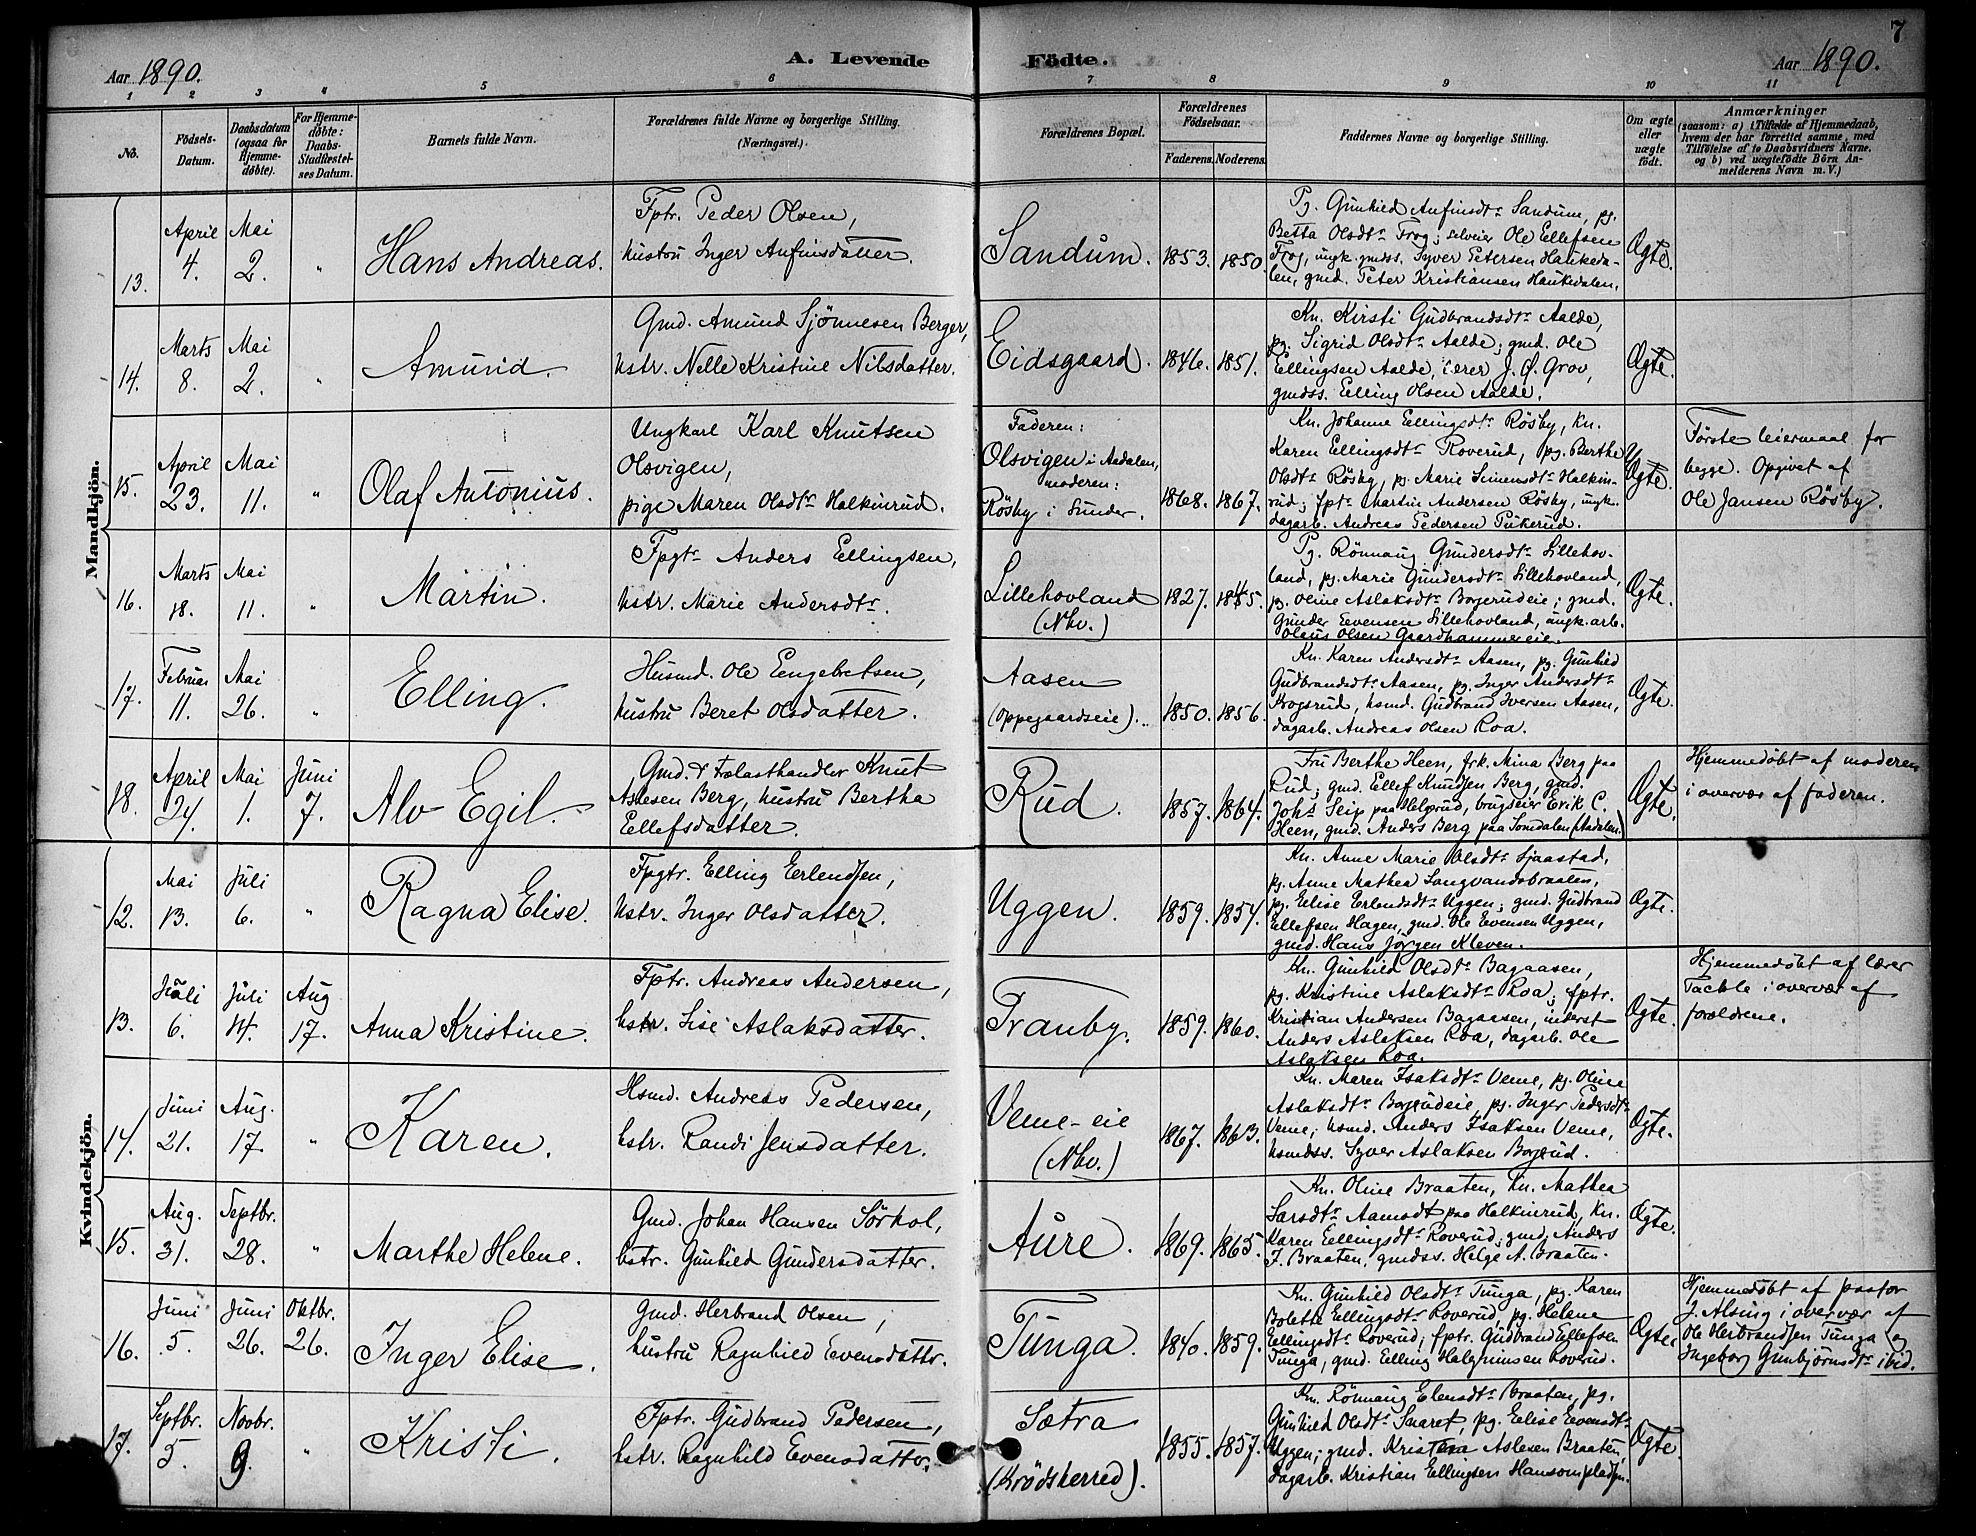 7
Aar 1890.
A. Levende
Födte.
Aar 1890.
1 2 3 4 5 6 7 8 9 10 11
No.
Födsels-
Datum.
Daabsdatum
(ogsaa for
Hjemme-
døbte).
For Hjemme-
døbte:
Daabs-
Stadfæstel-
ses Datum.
Barnets fulde Navn.
Forældrenes fulde Navne og borgerlige Stilling.
(Næringsvei.)
Forældrenes Bopæl.
Forældrenes
Födselsaar.
Faderens.
Moderens.
Faddernes Navne og borgerlige Stilling.
Om ægte
eller
uægte
födt.
Anmærkninger
(saasom: a) i Tilfælde af Hjemmedaab,
hvem der har forrettet samme, med
Tilföielse af to Daabsvidners Navne,
og b) ved uægtefödte Börn An-
melderens Navn m. V.)
Mandkjön.
13.
April
4.
Mai
2.
"
Hans Andreas.
Fptr. Peder Olsen,
hustru Inger Anfinsdatter.
Sandum.
1853.
1850
Pg. Gunhild Anfinsdtr Sandum, pg.
Betta Olsdtr Frog; selveier Ole Ellefsen
Frog, ungk. gmdss. Syver Petersen Haukeda-
len, gmd. Peter Kristiansen Haukedalen.
Ægte.
14.
Marts
8.
Mai
2.
"
Amund.
Gmd. Amund Sjönnesen Berger,
hstr. Nelle Kristine Nilsdatter.
Eidsgaard.
1846.
1851.
Kn. Kirsti Gudbrandsdtr Aalde,
pg. Sigrid Olsdtr Aalde; gmd. Ole
Ellingsen Aalde, lærer J. Ø. Grov,
gmdss. Elling Olsen Aalde.
Ægte.
15.
April
23.
Mai
11.
"
Olaf Antonius.
Ungkarl Karl Knutsen
Olsvigen,
pige Maren Olsdtr Halkinrud.
Faderen:
Olsvigen i Aadalen,
moderen:
Rösby i Sunder.
1868.
1867.
Kn. Johanne Ellingsdtr Rösby, kn.
Karen Ellingsdtr Roverud, pg. Berthe
Olsdtr Rösby, pg. Marie Simensdtr Halkin-
rud; fptr Martin Andersen Rösby, ungk.
dagarb. Andreas Pedersen Pukerud.
Uægte.
Förste leiermaal for
begge. Opgivet af
Ole Jansen Rösby.
16.
Marts
18.
Mai
11.
"
Martin.
Fpgtr Anders Ellingsen,
hstr. Marie Andersdtr.
Lillehovland
(Nhv.)
1827.
1845.
Pg. Rönnaug Gundersdtr Lillehov-
land, pg. Marie Gundersdtr Lillehovland,
pg. Oline Aslaksdtr Borgerudeie; gmd.
Gunder Evensen Lillehovland, ungk. arb.
Olaus Olsen Gaardhammereie.
Ægte.
17.
Februar
11.
Mai
26.
"
Elling.
Husmd. Ole Engebretsen,
hustru Beret Olsdatter.
Aasen
(oppegaardseie).
1850.
1856.
Kn. Karen Andersdtr Aasen, pg. Gunhild
Gudbrandsdtr Aasen, pg. Inger Andersdtr
Krogsrud, hsmd. Gudbrand Iversen Aasen,
dagarb. Andreas Olsen Roa.
Ægte.
18.
April
24.
Mai
1.
Juni
7.
Alv Egil.
Gmd. & Fælasthandler Knut
Aslesen Berg, hustru Bertha
Ellefsdatter.
Rud.
1857.
1864.
Fru Berthe Heen, frk. Mina Berg paa
Rud; gmd. Ellef Knudsen Berg, gmd.
Johs Seip paa Helgerud, brugseier Erik C.
Heen, gmd. Anders Berg paa Somdalen (Aadalen.)
Ægte.
Hjemmedøbt af moderen
i overvær af faderen.
Kvindekjön.
12.
Mai
13.
Juli
6.
"
Ragna Elise.
Fpgtr. Elling Erlendsen,
hstr. Inger Olsdatter.
Uggen.
1859.
1854.
Kn. Anne Marie Olsdtr Sjaastad,
pg. Anne Mathea Langvandsbraaten,
pg. Elise Erlendsdtr Uggen; gmd. Gudbrand
Ellefsen Hagen, gmd. Ole Evensen Uggen,
gmd. Hans Jörgen Kleven.
Ægte.
13.
Juli
6.
Juli
14.
Aug
17.
Anna Kristine.
Fptr. Andreas Andersen,
hstr. Lise Aslaksdatter.
Tranby.
1859.
1860.
Kn. Gunhild Olsdtr Bagaasen,
pg. Kristine Aslaksdtr Roa; fptr.
Kristian Andersen Bagaasen, inderst
Anders Aslaksen Roa, dagarb. Ole
Aslaksen Roa.
Ægte.
Hjemmedøbt af lærer
Tachle i overvær af
forældrene.
14.
Juni
21.
Aug.
17.
"
Karen.
Hsmd. Andreas Pedersen,
hstr. Randi Jensdatter.
Veme-eie
(Nhv.)
1867.
1863.
Kn. Maren Isaksdtr Veme, pg. Oline
Aslaksdtr Borgerudeie, pg. Inger Pedersdtr
Veme; hsmd. Anders Isaksen Veme,
hsmdss. Syver Aslaksen Borgerud.
Ægte.
15.
Aug.
31.
Septbr.
28.
"
Marthe Helene.
Gmd. Johan Hansen Sörhol,
hstr. Gunhild Gundersdatter.
Aure.
1869.
1865.
Kn. Oline Braaten, kn. Mathea
Larsdtr Aamodt paa Halkinrud, kn.
Karen Ellingsdtr Roverud; gmd. Anders
J. Braaten, gmdss. Helge A. Braaten.
Ægte.
16.
Juni
5.
Juni
26.
Oktbr.
26.
Inger Elise.
Gmd. Herbrand Olsen,
hustru Ragnhild Evensdattr.
Tunga.
1840.
1859.
Kn. Gunhild Olsdtr Tunga, pg. Karen
Bolette Ellingsdtr Roverud, pg. Helene
Ellingsdtr Roverud; fptr. Gudbrand Ellefsen
Tunga, gmd. Elling Halgrimsen Roverud.
Ægte.
Hjemmedøbt af pastor
J. Alsing i overvær af
Ole Herbrandsen Tunga og
Ingeborg Gunbjörnsdtr ibid.
17.
Septbr.
5.
Novbr.
9.
"
Kristi.
Fptr. Gudbrand Pedersen,
hstr. Ragnhild Evensdatter.
Sætra
(Krödsherred).
1855.
1857.
Kn. Rönnaug Elensdtr Braaten, pg.
Gunhild Olsdtr Snaret, pg. Elise Evensdtr
Uggen; gmd. Aslesen Braaten,
dagarb. Kristian Ellingsen Hansompladsen.
Ægte